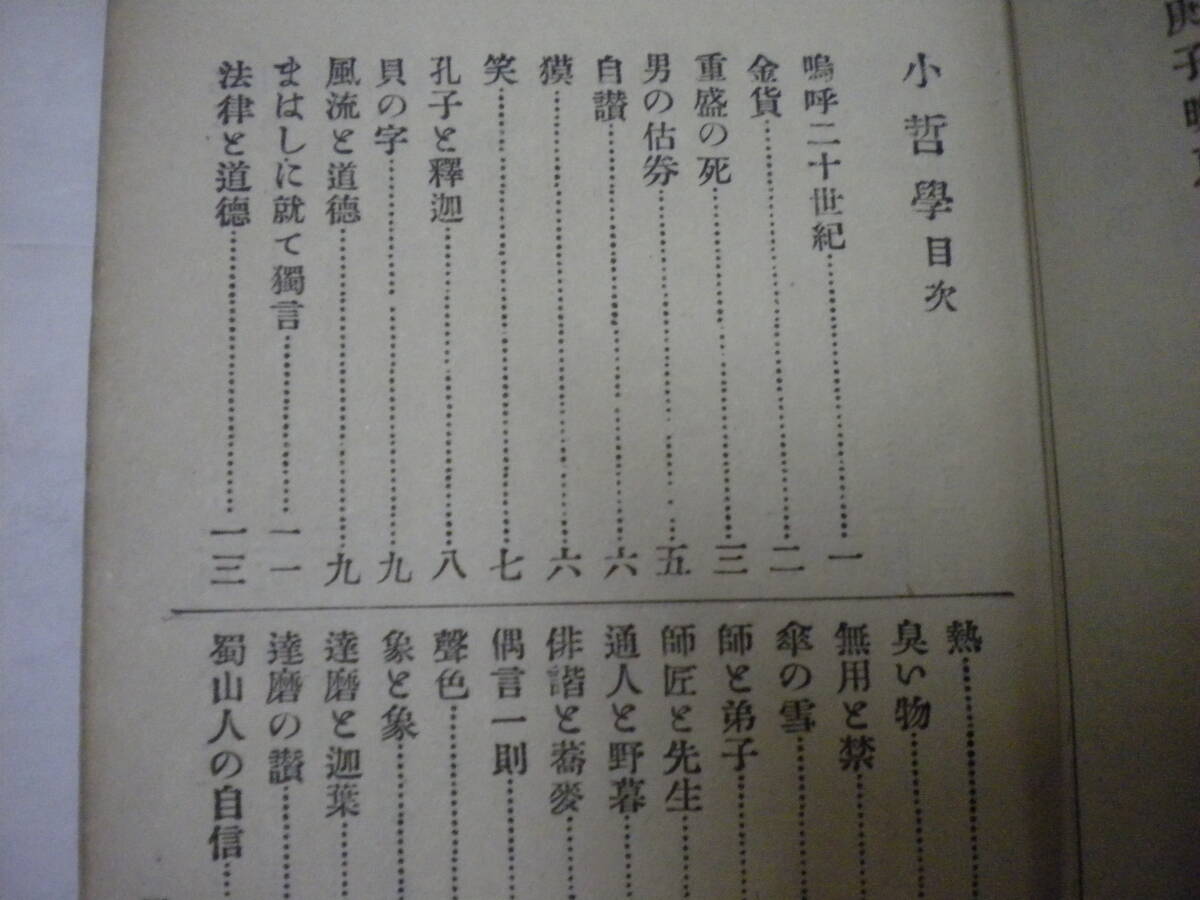 小哲學目次
嗚呼二十世紀……一
金貨……二
重盛の死……三
男の估券……五
自讃……六
獏……六
笑……七
孔子と釋迦……八
貝の字……九
風流と道德……九
まはしに就て獨言……一一
法律と道德……一三
熱……
臭い物……
無用と禁……
傘の雪……
師と弟子……
師匠と先生……
通人と野暮……
俳諧と蕎麥……
偶言一則……
聲色……
象と象……
達磨と迦葉……
達磨の讃……
蜀山人の自信……